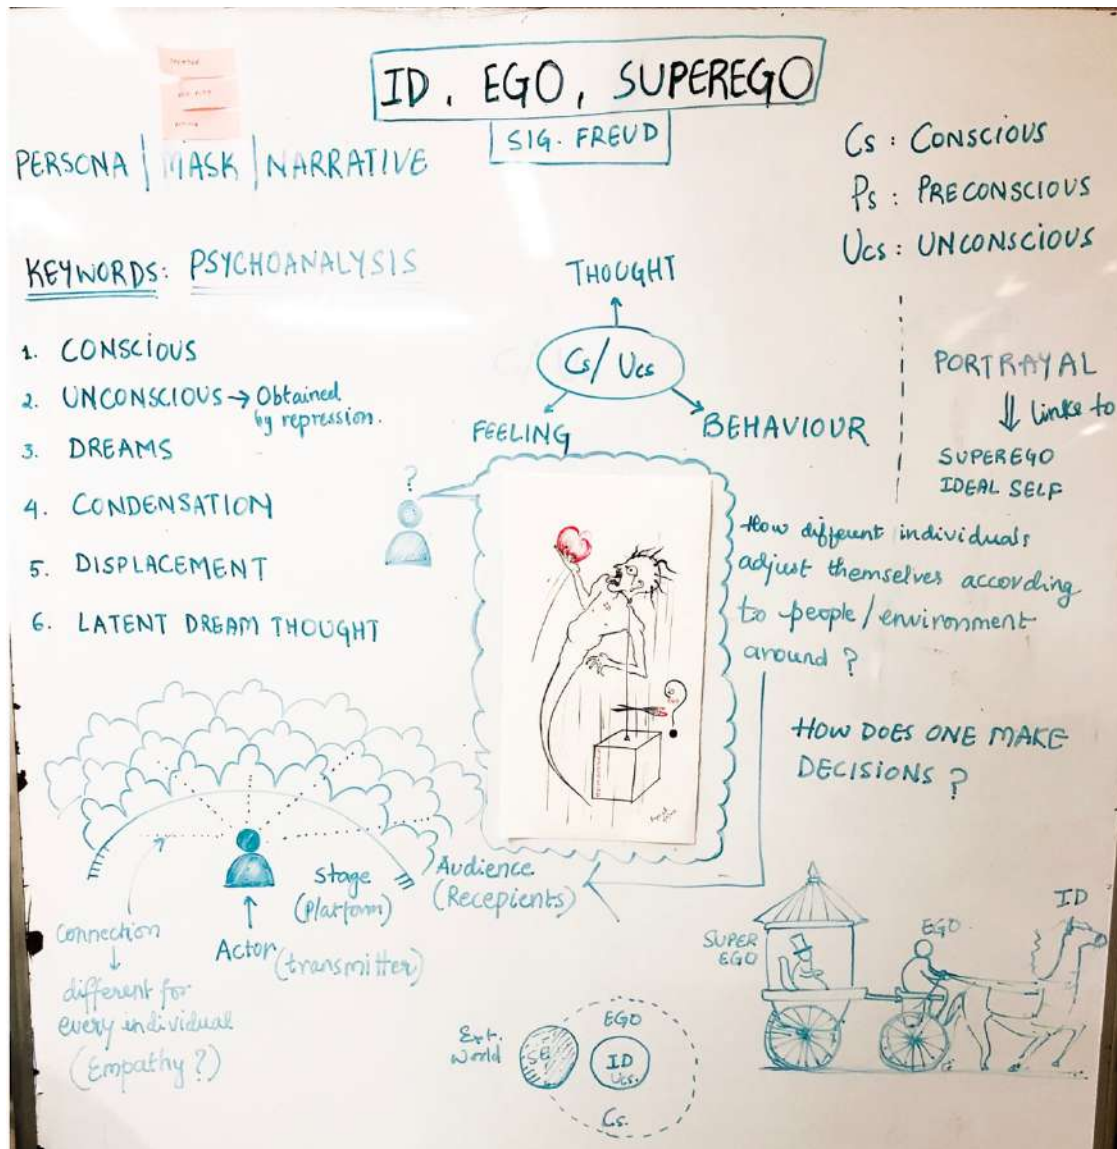 ID, EGO, SUPEREGO
SIG. FREUD
PERSONA | MASK | NARRATIVE
Cs : CONSCIOUS
Ps : PRECONSCIOUS
Ucs : UNCONSCIOUS
KEYWORDS: PSYCHOANALYSIS
1. CONSCIOUS
2. UNCONSCIOUS → Obtained
by repression.
3. DREAMS
4. CONDENSATION
5. DISPLACEMENT
6. LATENT DREAM THOUGHT
THOUGHT
Cs / Ucs
FEELING
BEHAVIOUR
?
PORTRAYAL
⇓ links to
SUPEREGO
IDEAL SELF
How different individuals
adjust themselves according
to people/environment
around ?
HOW DOES ONE MAKE
DECISIONS ?
Stage
(Platform)
Audience
(Recepients)
Actor (transmitter)
Connection
different for
every individual
(Empathy ?)
SUPER
EGO
EGO
ID
Ext.
World
SE
EGO
ID
Ucs.
Cs.